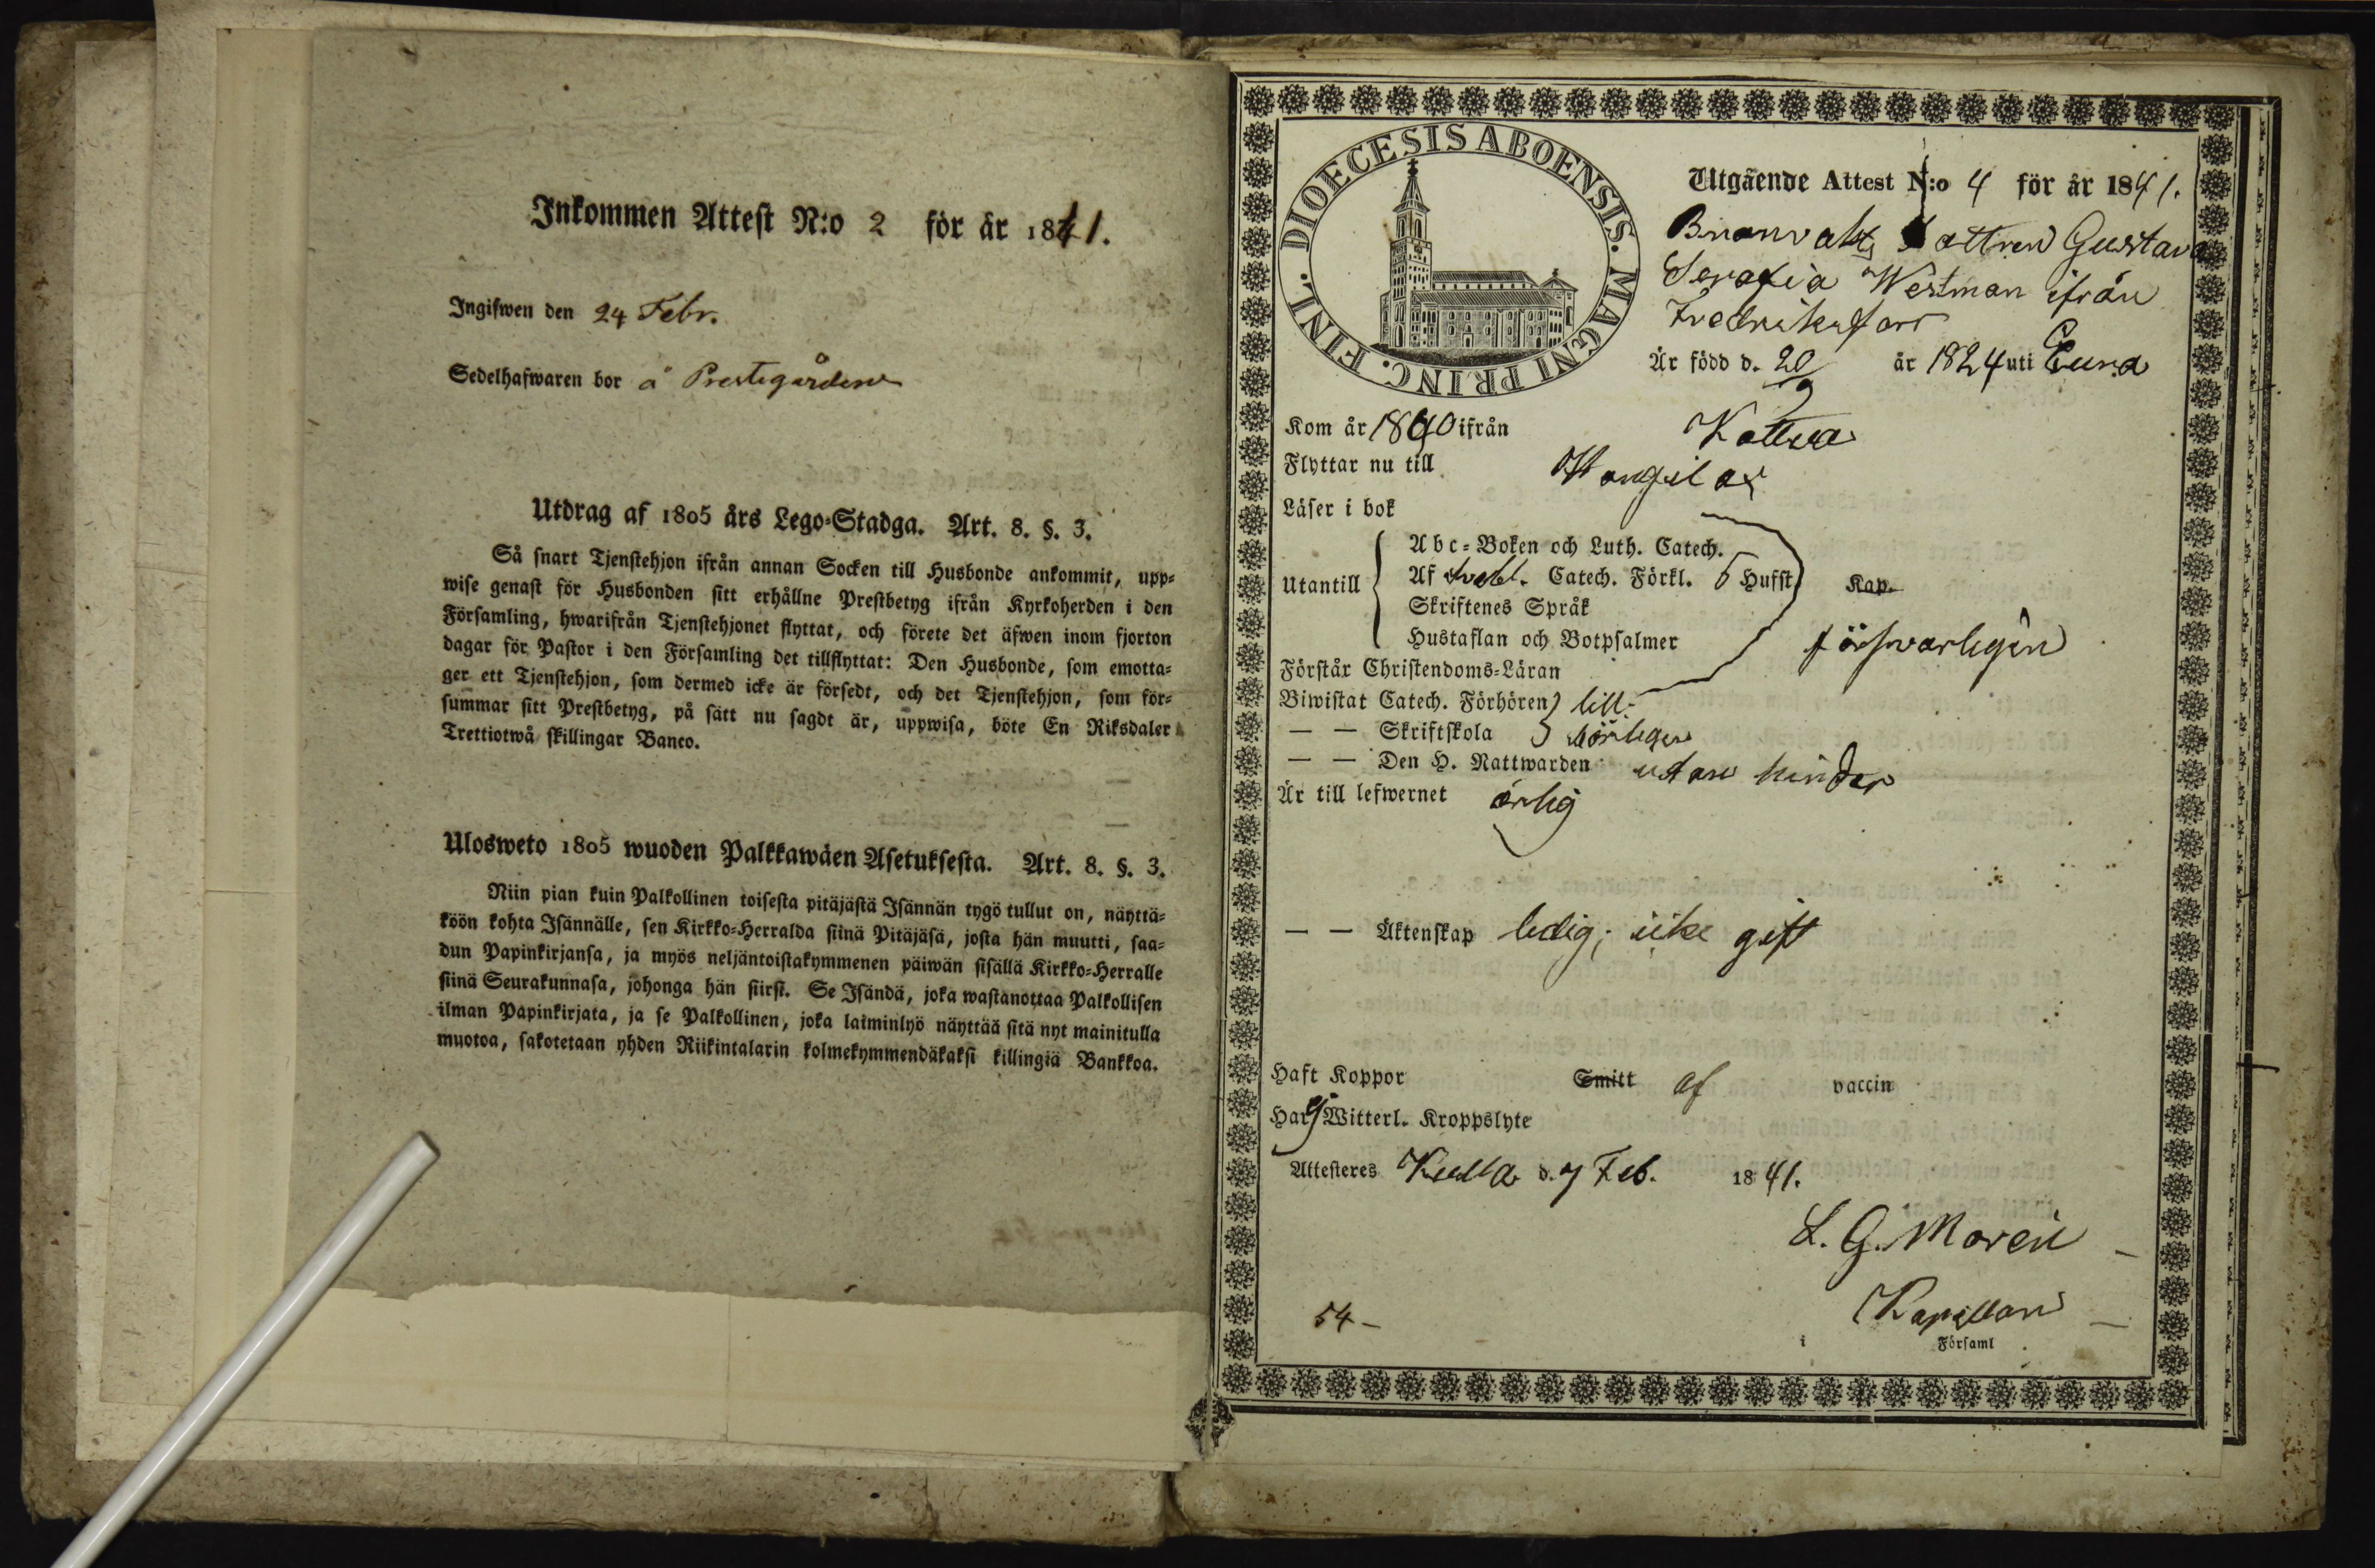 Inkommen Attest N:o 2 för år 1841.
Ingifwen den 24 Febr.
Sedelhafwaren bor å Prestegården
Utdrag af 1805 års Lego-Stadga. Art. 8. §. 3.
Så snart Tjenstehjon ifrån annan Socken till Husbonde ankommit, upp-
wise genast för Husbonden sitt erhållne Prestbetyg ifrån Kyrkoherden i den
Församling, hwarifrån Tjenstehjonet flyttat, och förete det äfwen inom fjorton
dagar för Pastor i den Församling det tillflyttat: Den Husbonde, som emotta-
ger ett Tjenstehjon, som dermed icke är försedt, och det Tjenstehjon, som för-
summar sitt Prestbetyg, på sätt nu sagdt är, uppwisa, böte En Riksdaler
Trettiotwå skillingar Banco.
Ulosweto 1805 wuoden Palkkawäen Asetuksesta. Art. 8. §. 3.
Niin pian kuin Palkollinen toisesta pitäjästä Isännän tygö tullut on, näyttä-
köön kohta Isännälle, sen Kirkko-Herralda siinä Pitäjäsä, josta hän muutti, saa-
dun Papinkirjansa, ja myös neljäntoistakymmenen päiwän sisällä Kirkko-Herralle
siinä Seurakunnasa, johonga hän siirsi. Se Isändä, joka wastanottaa Palkollisen
ilman Papinkirjata, ja se Palkollinen, joka laiminlyö näyttää sitä nyt mainitulla
muotoa, sakotetaan yhden Riikintalarin kolmekymmendäkaksi killingiä Bankkoa.
DIOECESIS ABOENSIS. MAGNI PRINC. FINL.
Utgående Attest N:o 4 för år 1841.
Gustava
Serafia Westman ifrån
Fredriksfors
Är född d. 20/9 år 1824 uti Eura
Kom år 1840 ifrån Kattua
Flyttar nu till
Läser i bok
Utantill
Abc-Boken och Luth. Catech.
Af Svebel. Catech. Förkl. 5 Hufst. Kap.
Skriftenes Språk
Hustaflan och Botpsalmer försvarligen
Förstår Christendoms-Läran
Biwistat Catech. Förhören till-
— — Skriftskola börligen
— — Den H. Nattwarden utan hinder
Är till lefwernet ärlig
— — Äktenskap ledig; icke gift
Haft Koppor Smitt af vaccin
Har ej Witterl. Kroppslyte
Attesteres Kulla d. 7 Feb. 1841.
L. G. Morén
Kapellan
54 —
i Församl